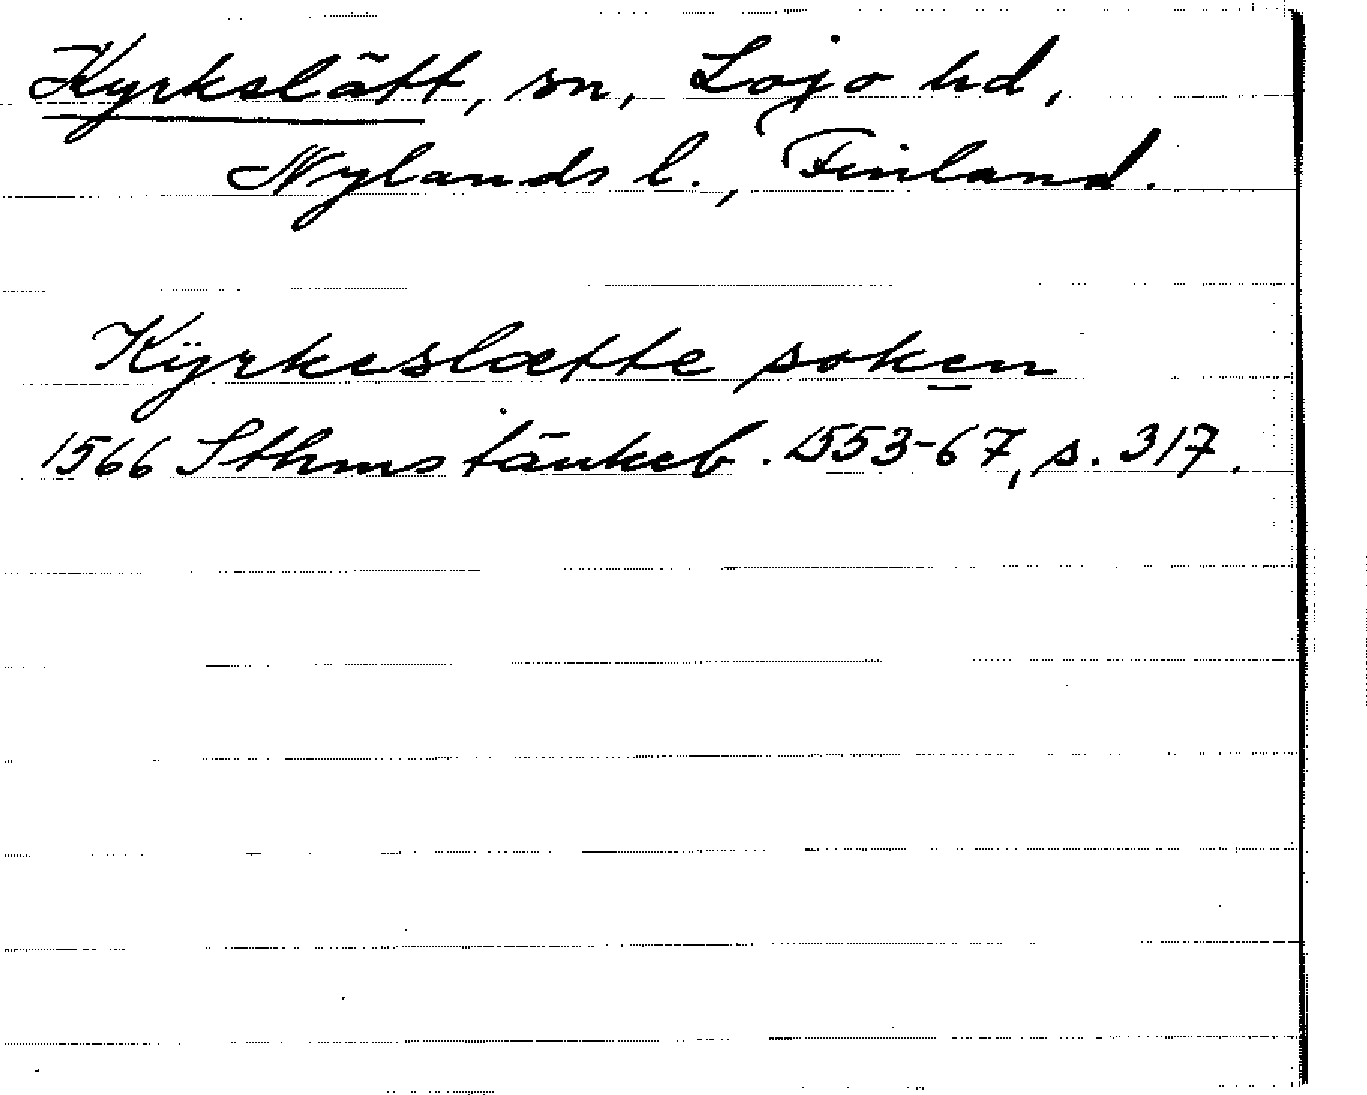 Kyrkslätt, sn, Lojo hd,
Nylands l., Finland.
Kÿrkeslætte soken
1566 Sthms tänkeb. 1553-67, s. 317.